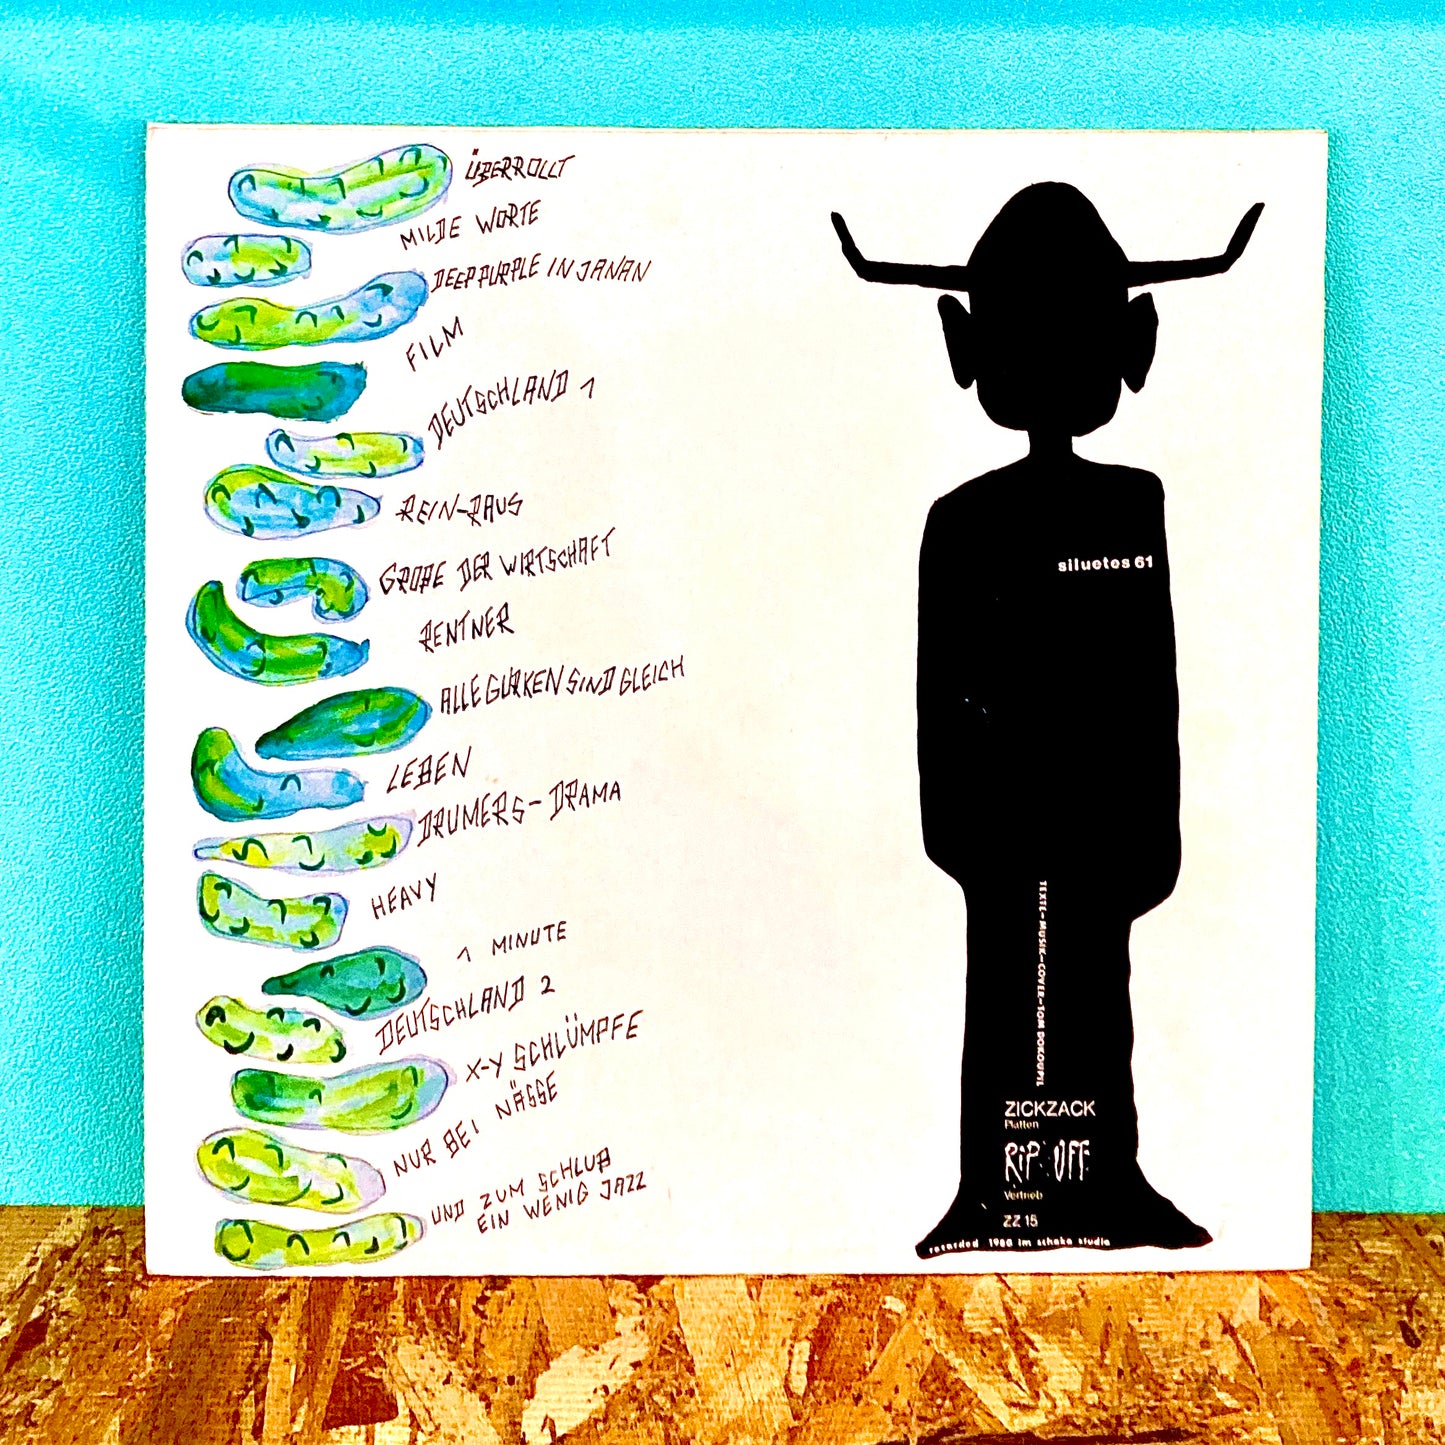 ÜBERROLLT
MILDE WORTE
DEEP PURPLE IN JANAN
FILM
DEUTSCHLAND 1
REIN-RAUS
GROBE DER WIRTSCHAFT
RENTNER
ALLE GURKEN SIND GLEICH
LEBEN
DRUMERS-DRAMA
HEAVY
1 MINUTE
DEUTSCHLAND 2
X-Y SCHLÜMPFE
NUR BEI NÄSSE
UND ZUM SCHLUß
EIN WENIG JAZZ
siluetes 61
TEXTE-MUSIK-COVER-TOM DOKOUPIL
ZICKZACK
Platten
RiP OFF
Vertrieb
ZZ 15
recorded 1980 im schako studio